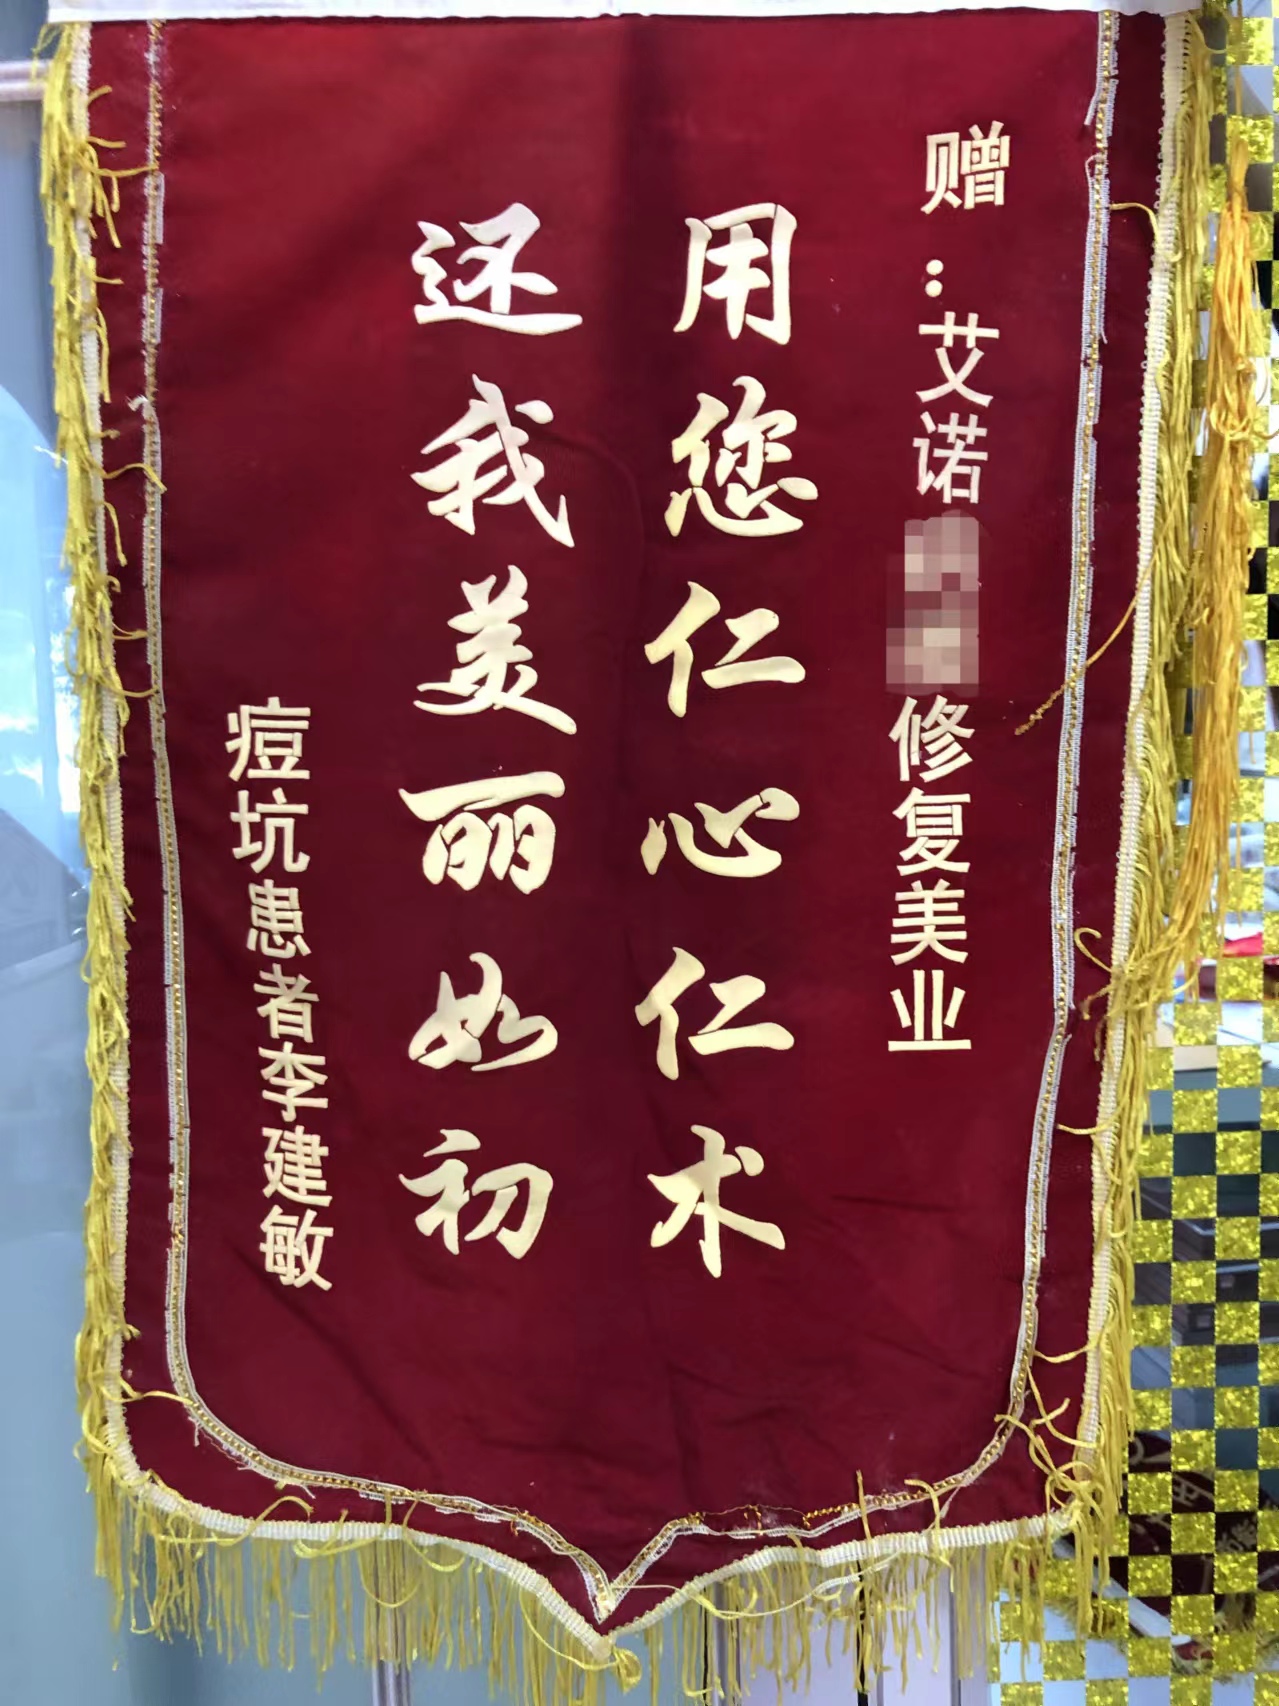 赠：艾诺修复美业
用您仁心仁术
还我美丽如初
痘坑患者李建敏